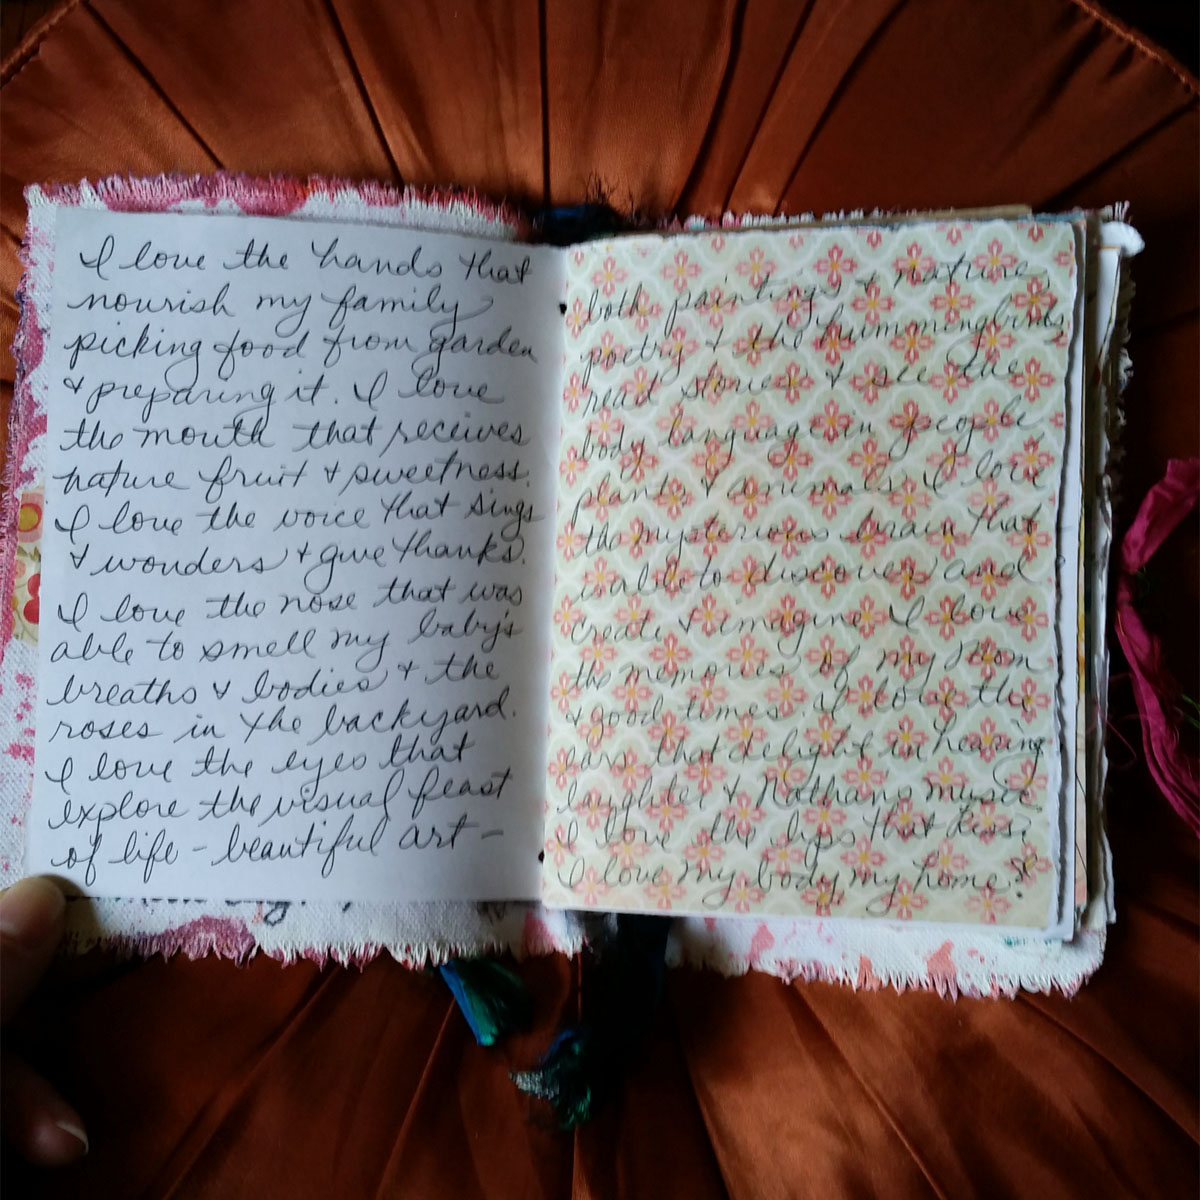 I love the hands that
nourish my family
picking food from garden
& preparing it. I love
the mouth that receives
nature fruit & sweetness.
I love the voice that sings
& wonders & give thanks.
I love the nose that was
able to smell my baby's
breaths & bodies & the
roses in the backyard.
I love the eyes that
explore the visual feast
of life - beautiful art -
both paintings & nature,
poetry & the hummingbirds
read stories & see the
body language in people
plants & animals. I love
the mysterious brain that
is able to discover and
create & imagine. I love
the memories of my Mom
& good times. I love the
ears that delight in hearing
laughter & Nathan's music
I love the lips that kiss.
I love my body, my home.